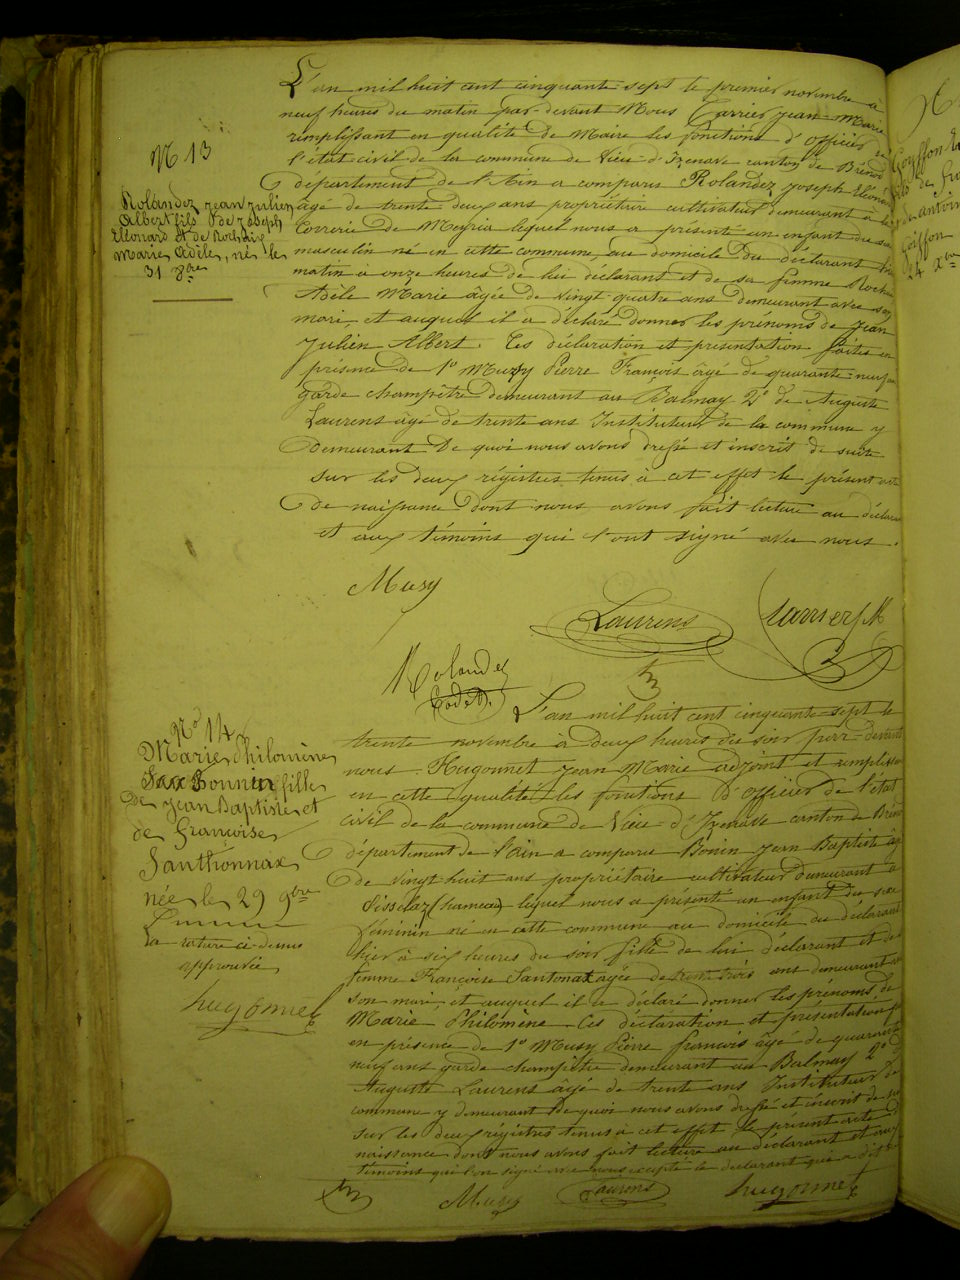 N 13
Rolandez jean Julien
Albert fils de Joseph
Eléonard et de Rochaix
Marie Adèle, né le
31 8bre
L'an mil huit cent cinquante sept le premier novembre a
neuf heures du matin par devant Nous Carrier Jean-Marie
remplissant en qualité de Maire les fonctions d'officier de
l'état civil de la commune de Vieu-d'Izenave canton de Brénod
département de l'Ain a comparu Rolandez Joseph Eléonard
âgé de trente-deux ans propriétaire cultivateur demeurant à la
Correrie de Meyria lequel nous a présenté un enfant du sexe
masculin né en cette commune, au domicile du déclarant
matin à onze heures de lui déclarant et de sa femme Rochaix
Adèle Marie âgée de vingt-quatre ans demeurant avec son
mari, et auquel il a déclaré donner les prénoms de Jean
Julien Albert. Ces déclaration et présentation faites en
présence de 1° Musy Pierre François âgé de quarante-neuf ans
garde champêtre demeurant au Balmay 2° de Auguste
Laurens âgé de trente ans Instituteur de la commune y
demeurant De quoi nous avons dressé et inscrit de suite
sur les deux régistres tenus à cet effet le présent acte
de naissance dont nous avons fait lecture au déclarant
et aux témoins qui l'ont signé avec nous.
Musy
Laurens
Carrier J M
Rolandez
N° 14
Marie Philomène
Bonnin fille
de Jean Baptiste et
de françoise
Santhonnax
née le 29 9bre
La rature ci-dessus
approuvée
hugonnet
L'an mil huit cent cinquante-sept le
trente novembre à deux heures du soir par-devant
nous Hugonnet Jean Marie adjoint et remplissant
en cette qualité les fonctions d'officier de l'état
civil de la commune de Vieu-d'Izenave canton de Brénod
département de l'ain a comparu Bonin Jean Baptiste âgé
de vingt huit ans propriétaire cultivateur demeurant à
(hameau) lequel nous a présenté un enfant du sexe
féminin né en cette commune au domicile du déclarant
hier à six heures du soir fille de lui déclarant et de
femme Françoise Santonax âgée de trente trois ans demeurant
son mari et auquel il a déclaré donner les prénoms de
Marie Philomène. Ces déclaration et présentation
en présence de 1° Musy Pierre françois âgé de quarante
neuf ans garde champêtre demeurant au Balmay 2° d
Auguste Laurens âgé de trente ans Instituteur de
commune y demeurant De quoi nous avons dressé et inscrit de
sur les deux régistres tenus à cet effet le présent acte de
naissance dont nous avons fait lecture au déclarant et aux
témoins qui l'on signé avec nous excepté le déclarant qui a dit
Musy
Laurens
hugonnet
Goyffon